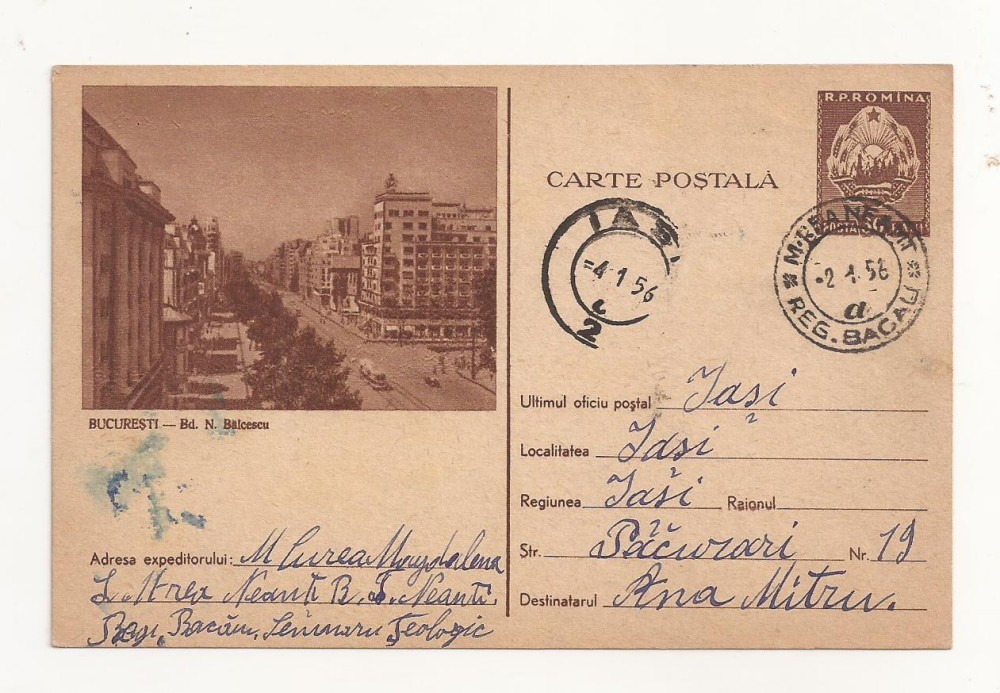 R.P.ROMÎNA
CARTE POȘTALĂ
POSTA
IAȘI
-4.1 56
2
REG. BACĂU
-2 1 56
a
BUCUREȘTI — Bd. N. Bălcescu
Ultimul oficiu poștal Iași
2
Localitatea Iași
Regiunea Iași Raionul
Str. Păcurari Nr. 19
Destinatarul Ana Mitru.
Adresa expeditorului: M Curea Magdalena
Neanț R. Neanț.
Reg. Bacău, Seminaru Teologic